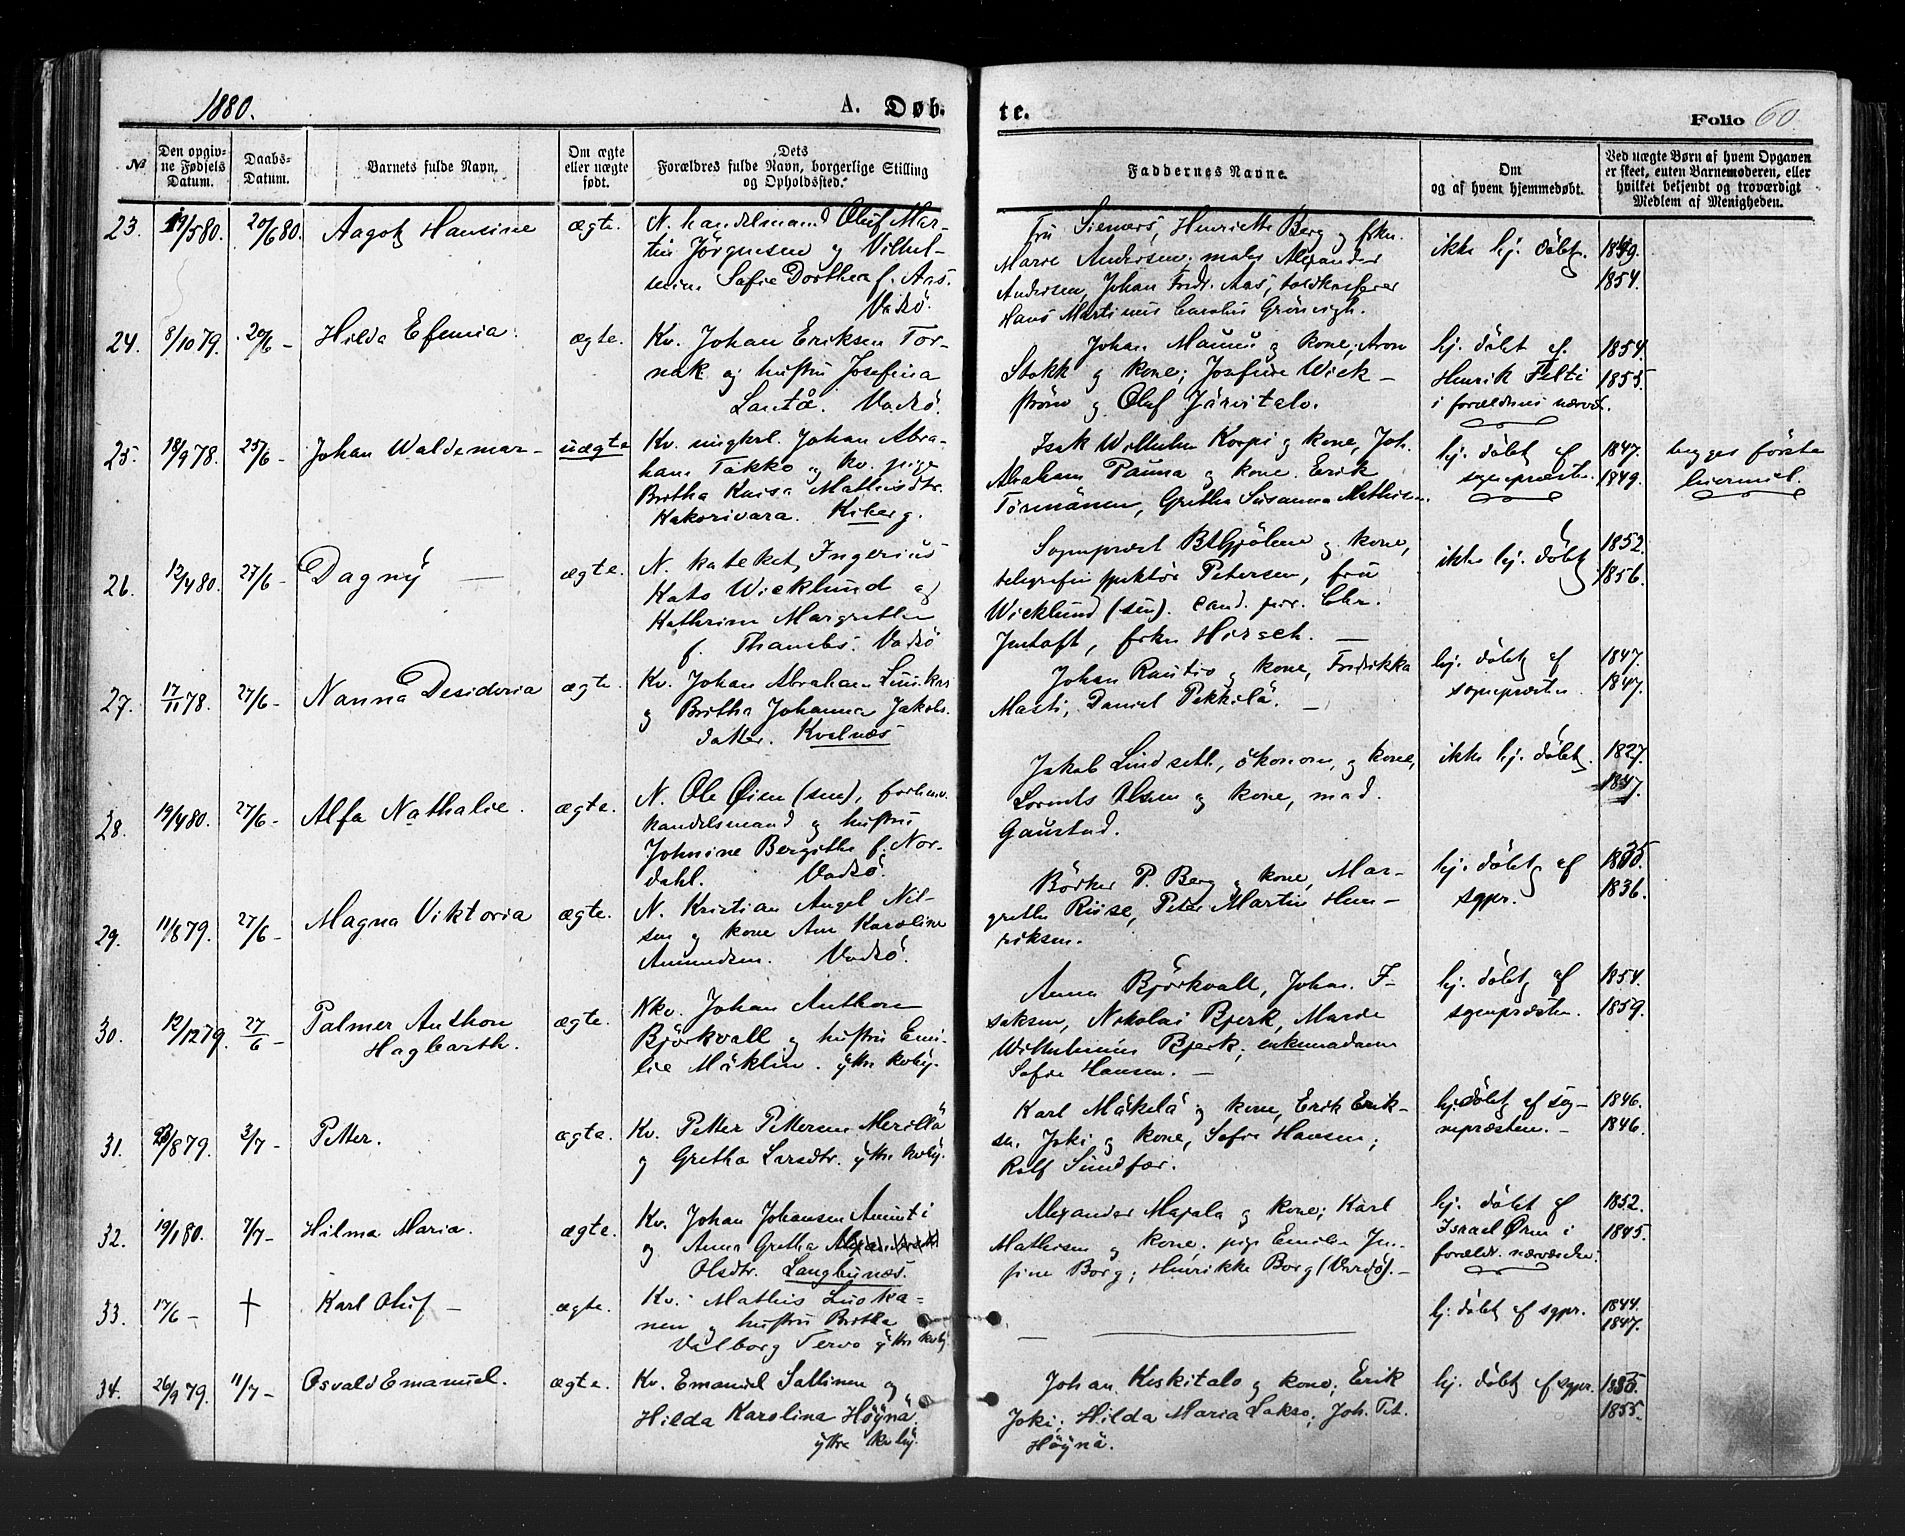 1880.
A. Døb.
te.
Folio 60
№
Den opgiv-
ne Fødsels
Datum.
Daabs-
Datum.
Barnets fulde Navn.
Om ægte
eller uægte
født.
Dets
Forældres fulde Navn, borgerlige Stilling
og Opholdssted.
Faddernes Navne.
Om
og af hvem hjemmedøbt.
Ved uægte Børn af hvem Opgaven
er skeet, enten Barnemoderen, eller
hvilket bekjendt og troværdigt
Medlem af Menigheden.
23. 19/5 80. 20/6 80. Aagot Hansine ægte.
N. handelsmand Oluf Mar-
tin Jörgensen og Vilhel-
mine Sofie Dorthea f. Aas.
Vadsö.
Fru Siemers, Henriette Berg og frkn.
Marie Andersen; maler Alexander
Andersen, Johan Fredr. Aas, toldkasserer
Hans Martinus Carolus Grönvigh.
ikke hj. döbt.
1849.
1854.
24. 8/10 79. 20/6 – Hilda Efemia. ægte.
Kv. Johan Eriksen Tor-
nak og hustru Josefina
Lantå. Vadsö.
Johan Maunu og kone; Aron
Stokk og kone; Josefine Wick-
ström og Oluf Järvitalo.
hj. döbt af
Henrik Filti
i forældrenes nærvær.
1854.
1855.
25. 18/9 78. 25/6 – Johan Waldemar – uægte
Kv. ungkrl. Johan Abra-
ham Takko og kv. pige
Britha Kaisa Mathisdtr.
Kakorivara. Kiberg.
Isak Wilhelm Korpi og kone, Joh.
Abraham Pauna og kone. Erik
Törmänen, Gretha Susanna Mathisen.
hj. döbt af
sogneprästen.
1847.
1849.
begges förste
leiermål.
26. 12/4 80. 27/6 – Dagny – ægte.
N. kateket Ingerius
Kato Wicklund og
Kathrine Margrethe
f. Thambs. Vadsö
Sogneprest B Gjölme og kone,
telegrafinspektör Petersen, fru
Wicklund (sen). cand. jur. Chr.
Jentoft, frkn Hirsch. –
ikke hj. döbt
1852.
1856.
27. 17/11 78. 27/6 – Nanna Desideria ægte.
Kv. Johan Abraham
og Britha Johanna Jakobs-
datter. Kvalnæs
Johan Rautio og kone, Fredrikka
Masti, Daniel Pekkilä. –
hj. döbt af
sogneprästen
1847.
1847.
28. 19/4 80. 27/6 – Alfa Nathalie. ægte.
N. Ole Øien (sen), forhenv.
handelsmand og hustru
Johnine Bergithe f. Nor-
dahl. Vadsö.
Jakob Lindseth, ökonom, og kone,
Lorents Olsen og kone, mad.
Gaustad.
ikke hj. döbt.
1827.
1847.
29. 11/8 79. 27/6 – Magna Viktoria ægte.
N. Kristian Angel Nil-
sen og kone Ane Karoline
Amundsen. Vadsö.
Bödker P. Berg og kone, Mar-
grethe Riise, Peter Martin Hen-
riksen.
hj. döbt af
sgpr.
1835.
1836.
30. 12/12 79. 27/6 – Palmer Anthon
Hagbarth. ægte.
Nkv. Johan Anthon
Björkvall og hustru Emi-
lie Mäklin. yttre kvby.
Anna Björkvall, Johan F-
saksen, Nikolai Bjerk, Marie
Wilhelmine Bjerk; enkemadam
Sofie Hansen. –
hj. döbt af
sgneprästen.
1854.
1859.
31. /8 79. 3/7 – Petter. ægte.
Kv. Petter Pettersen Merillä
og Gretha Larsdtr. yttre kvby.
Karl Mäkelä og kone, Erik Erik-
sen Joki og kone, Sofie Hansen;
Rolf Sundfær.
hj. döbt af sog-
neprästen. –
1846.
1846.
32. 19/1 80. 7/7 – Hilma Maria. ægte.
Kv. Johan Johansen
og Anna Gretha
Olsdtr. Langbunæs.
Alexander Majala og kone; Karl
Mathisen og kone. pige Emilie Jo-
sine Borg; Henrikke Borg (Vardö). –
hj. döbt af
Israel Ørn i
forældr. nærværelse.
1852.
1845.
33. 17/6 – † Karl Oluf – ægte.
Kv. Mathis Luoka-
nen og hustru Britha
Valborg Tervo yttre kvby
–
hj. döbt af sgpr.
1844.
1847.
34. 26/9 79. 11/7 – Osvald Emanuel. ægte.
Kv. Emanuel Sallinen og
Hilda Karolina Höynä.
yttre kvby.
Johan Keskitalo og kone; Erik
Joki; Hilda Maria Lakso; Joh. Pet.
Höynä.
hj. döbt af sgpr.
1855.
1855.